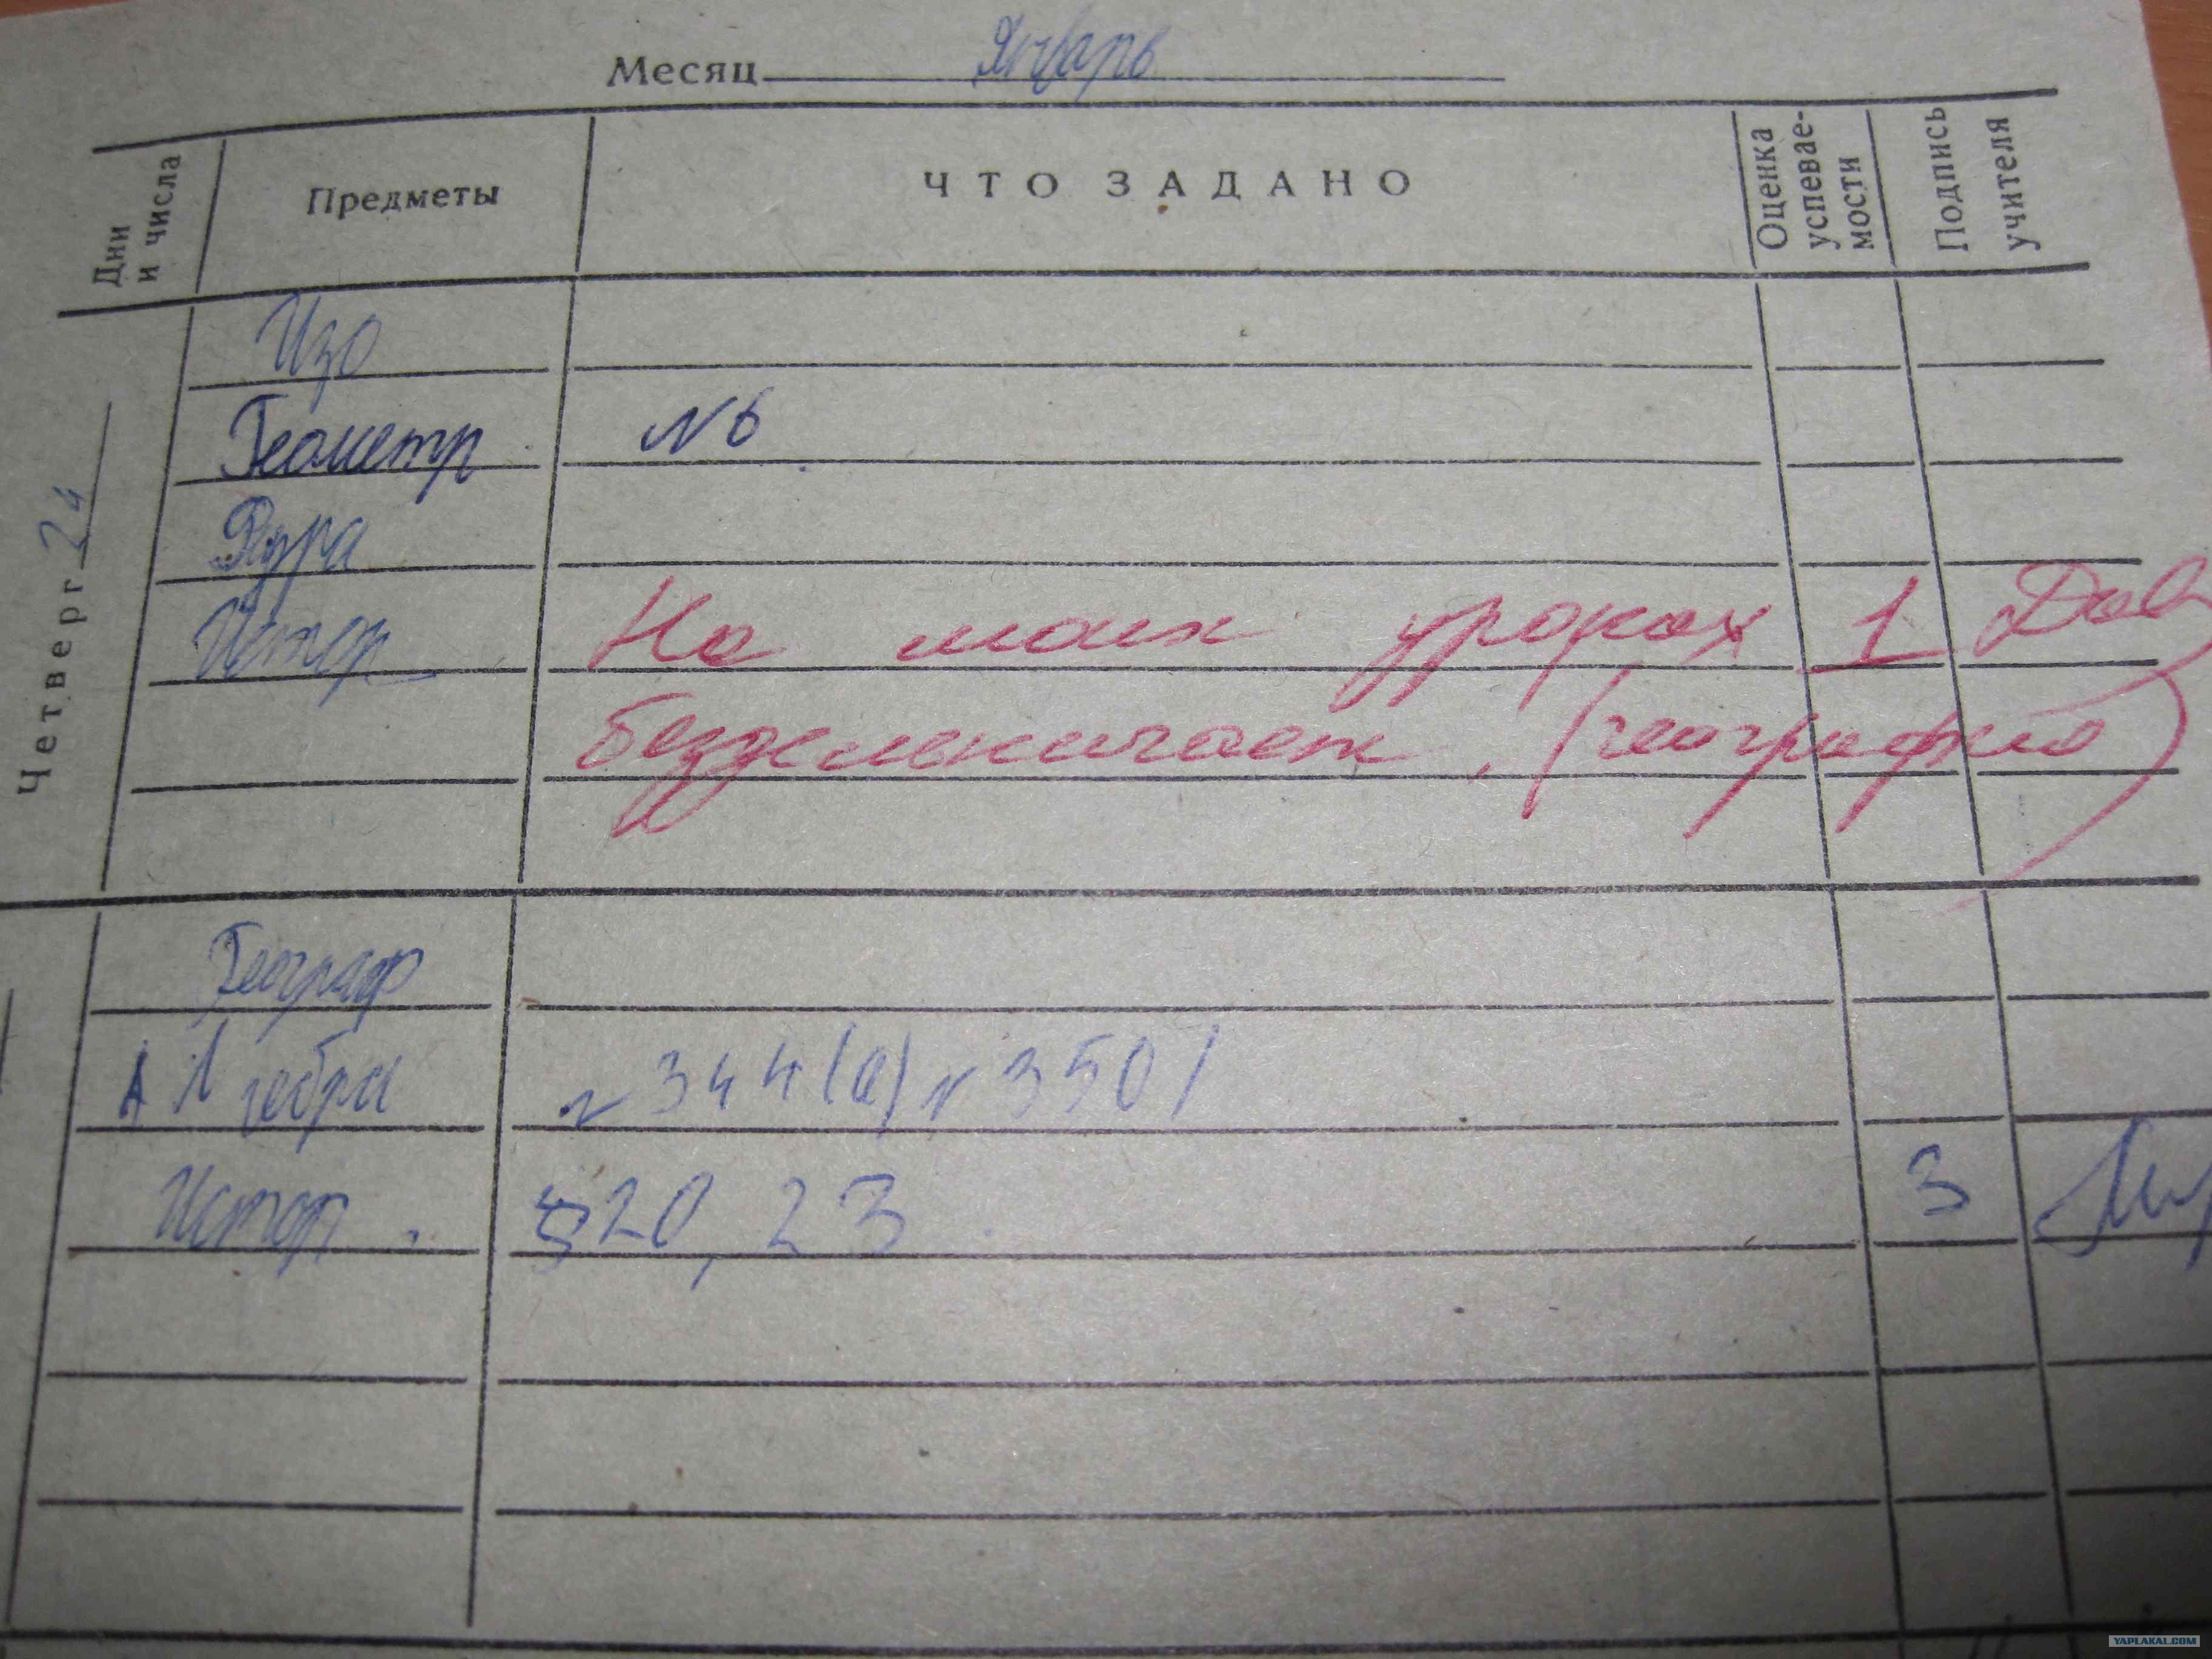 Месяц Январь
Дни и числа Предметы ЧТО ЗАДАНО Оценка успевае- мости Подпись учителя
Четверг 24
Изо
Геометр №6
Физра
Истор На моих уроках 1
бездельничает. (география)
Географ
Алгебра №344(а) №350
Истор. §20, 23 3
YAPLAKAL.COM